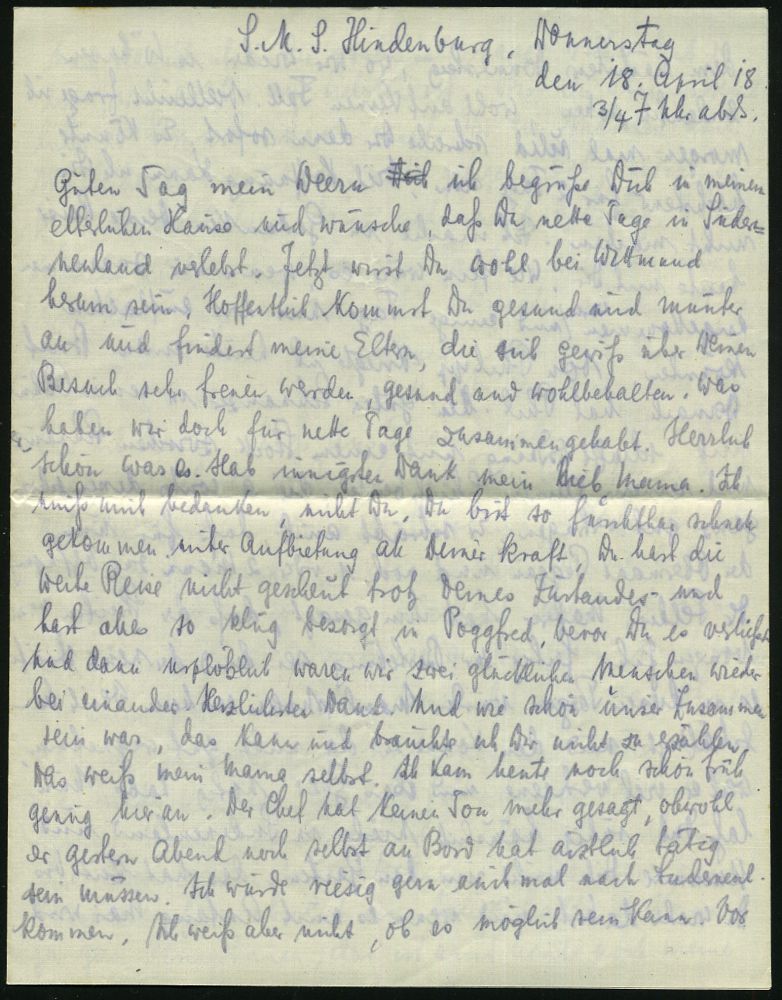 S.M.S. Hindenburg, Donnerstag
den 18. April 18.
3/4 7 Uhr abds.
Guten Tag mein Deern ich begrüße Dich in meinem
elterlichen Hause und wünsche, daß Du nette Tage in Süder=
neuland verlebst. Jetzt wirst Du wohl bei Wittmund
herum sein. Hoffentlich kommst Du gesund und munter
an und findest meine Eltern, die sich gewiß über Deinen
Besuch sehr freuen werden, gesund und wohlbehalten. Was
haben wir doch für nette Tage zusammen gehabt. Herrlich
schön was es. Hab innigsten Dank mein lieb Mama. Ich
muß mich bedanken, nicht Du, Du bist so furchtbar schnell
gekommen unter Aufbietung all Deiner Kraft, Du hast die
weite Reise nicht gescheut trotz Deines Zustandes und
hast alles so klug besorgt in Poggfred, bevor Du es verließest
Und dann urplötzlich waren wir zwei glücklichen Menschen wieder
bei einander. Herzlichsten Dank. Und wie schön unser Zusammen
sein war, das kann und brauchte ich Dir nicht zu erzählen.
Das weiß mein Mama selbst. Ich kam heute noch schön früh
genug hier an. Der Chef hat keinen Ton mehr gesagt, obwohl
er gestern Abend noch selbst an Bord hat ärztlich tätig
sein müssen. Ich würde riesig gern auch mal nach Süderneul.
kommen, ich weiß aber nicht, ob es möglich sein kann. Vor